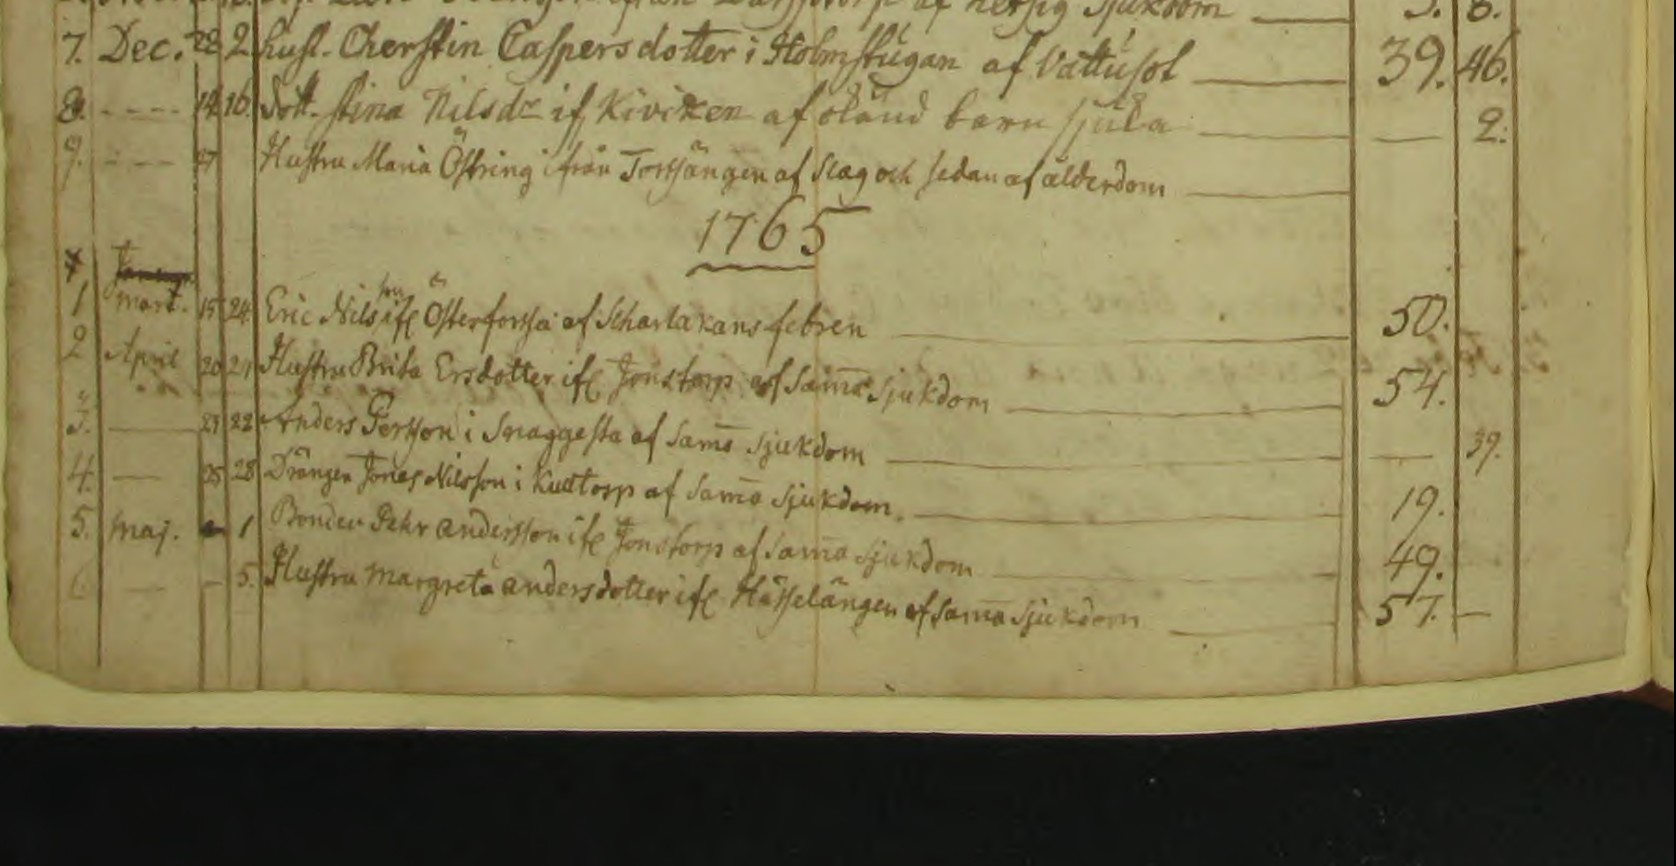 hersig Sjukdom 5. 8.
7. Dec. 28 2 husl. Cherstin Caspersdotter i Holmstugan af Vattusot 39. 46.
8. 14 16. Dott. Stina Nilsdr if. Kiviken af okänd barn sjuka 2.
9. 27 Hustru Maria Östring ifrån Torssängen af Slag och sedan af ålderdom
1765
1 Mart. 15 24 Eric Nilsson ifr. Österforssa af Scharlakans febren 50.
2 April 20 21 Hustru Brita Ersdotter ifr. Jonstorp af Sam̅a Sjukdom 54.
3. 21 22 Anders Persson i Snaggesta af Sam̅a Sjukdom 39.
4. 25 28 Drängen Jonas Nilsson i Kulltorp af Sam̅a Sjukdom. 19.
5. Maj. 1 Bonden Pehr Andersson ifr. Jonstorp af Sam̅a Sjukdom 49.
6 5. Hustru Margreta Andersdotter ifr. Hässelängen af Sam̅a Sjukdom 57.